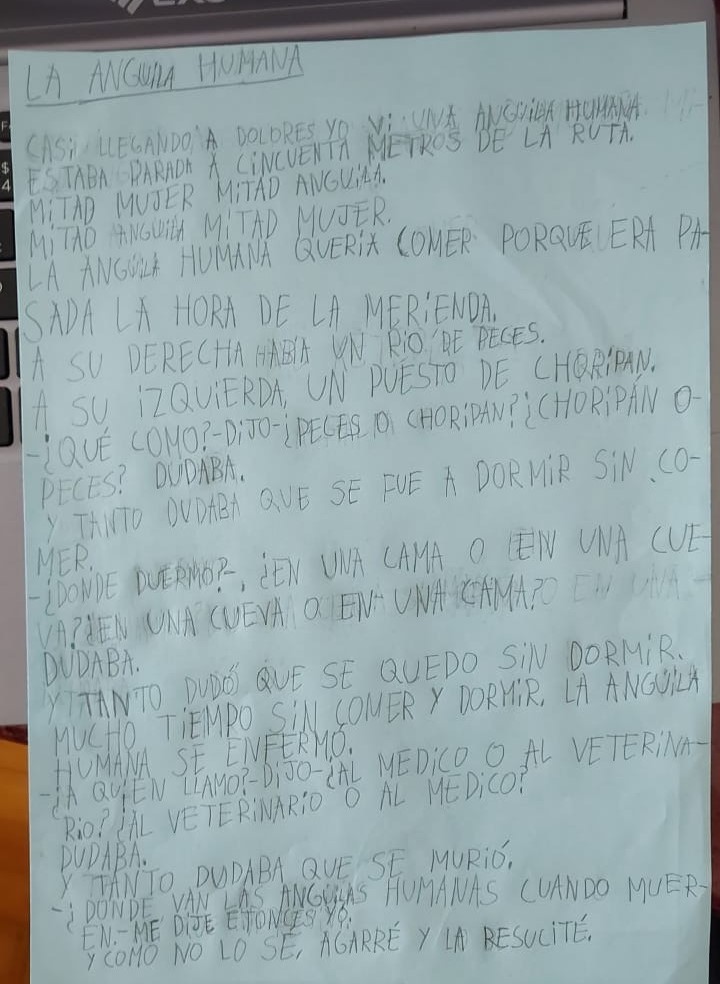 LA ANGUILA HUMANA
CASI LLEGANDO A DOLORES YO VI UNA ANGUILA HUMANA.
ESTABA PARADA A CINCUENTA METROS DE LA RUTA.
MITAD MUJER MITAD ANGUILA.
MITAD ANGUILA MITAD MUJER.
LA ANGUILA HUMANA QUERIA COMER PORQUE ERA PA-
SADA LA HORA DE LA MERIENDA.
A SU DERECHA HABÍA UN RIO DE PECES.
A SU IZQUIERDA, UN PUESTO DE CHORIPAN.
-¿QUÉ COMO?-DIJO-¿PECES O CHORIPAN?¿CHORIPÁN O-
PECES? DUDABA.
Y TANTO DUDABA QUE SE FUE A DORMIR SIN CO-
MER.
-¿DONDE DUERMO?-, ¿EN UNA CAMA O EN UNA CUE-
VA?¿EN UNA CUEVA O EN UNA CAMA?
DUDABA.
Y TANTO DUDÓ QUE SE QUEDO SIN DORMIR.
MUCHO TIEMPO SIN COMER Y DORMIR. LA ANGUILA
HUMANA SE ENFERMÓ.
-¿A QUIEN LLAMO?-DIJO-¿AL MEDICO O AL VETERINA-
RIO? ¿AL VETERINARIO O AL MEDICO?
DUDABA.
Y TANTO DUDABA QUE SE MURIÓ.
-¿DONDE VAN LAS ANGUILAS HUMANAS CUANDO MUER-
EN.-ME DIJE ETONCES YO.
Y COMO NO LO SÉ, AGARRÉ Y LA RESUCITÉ.